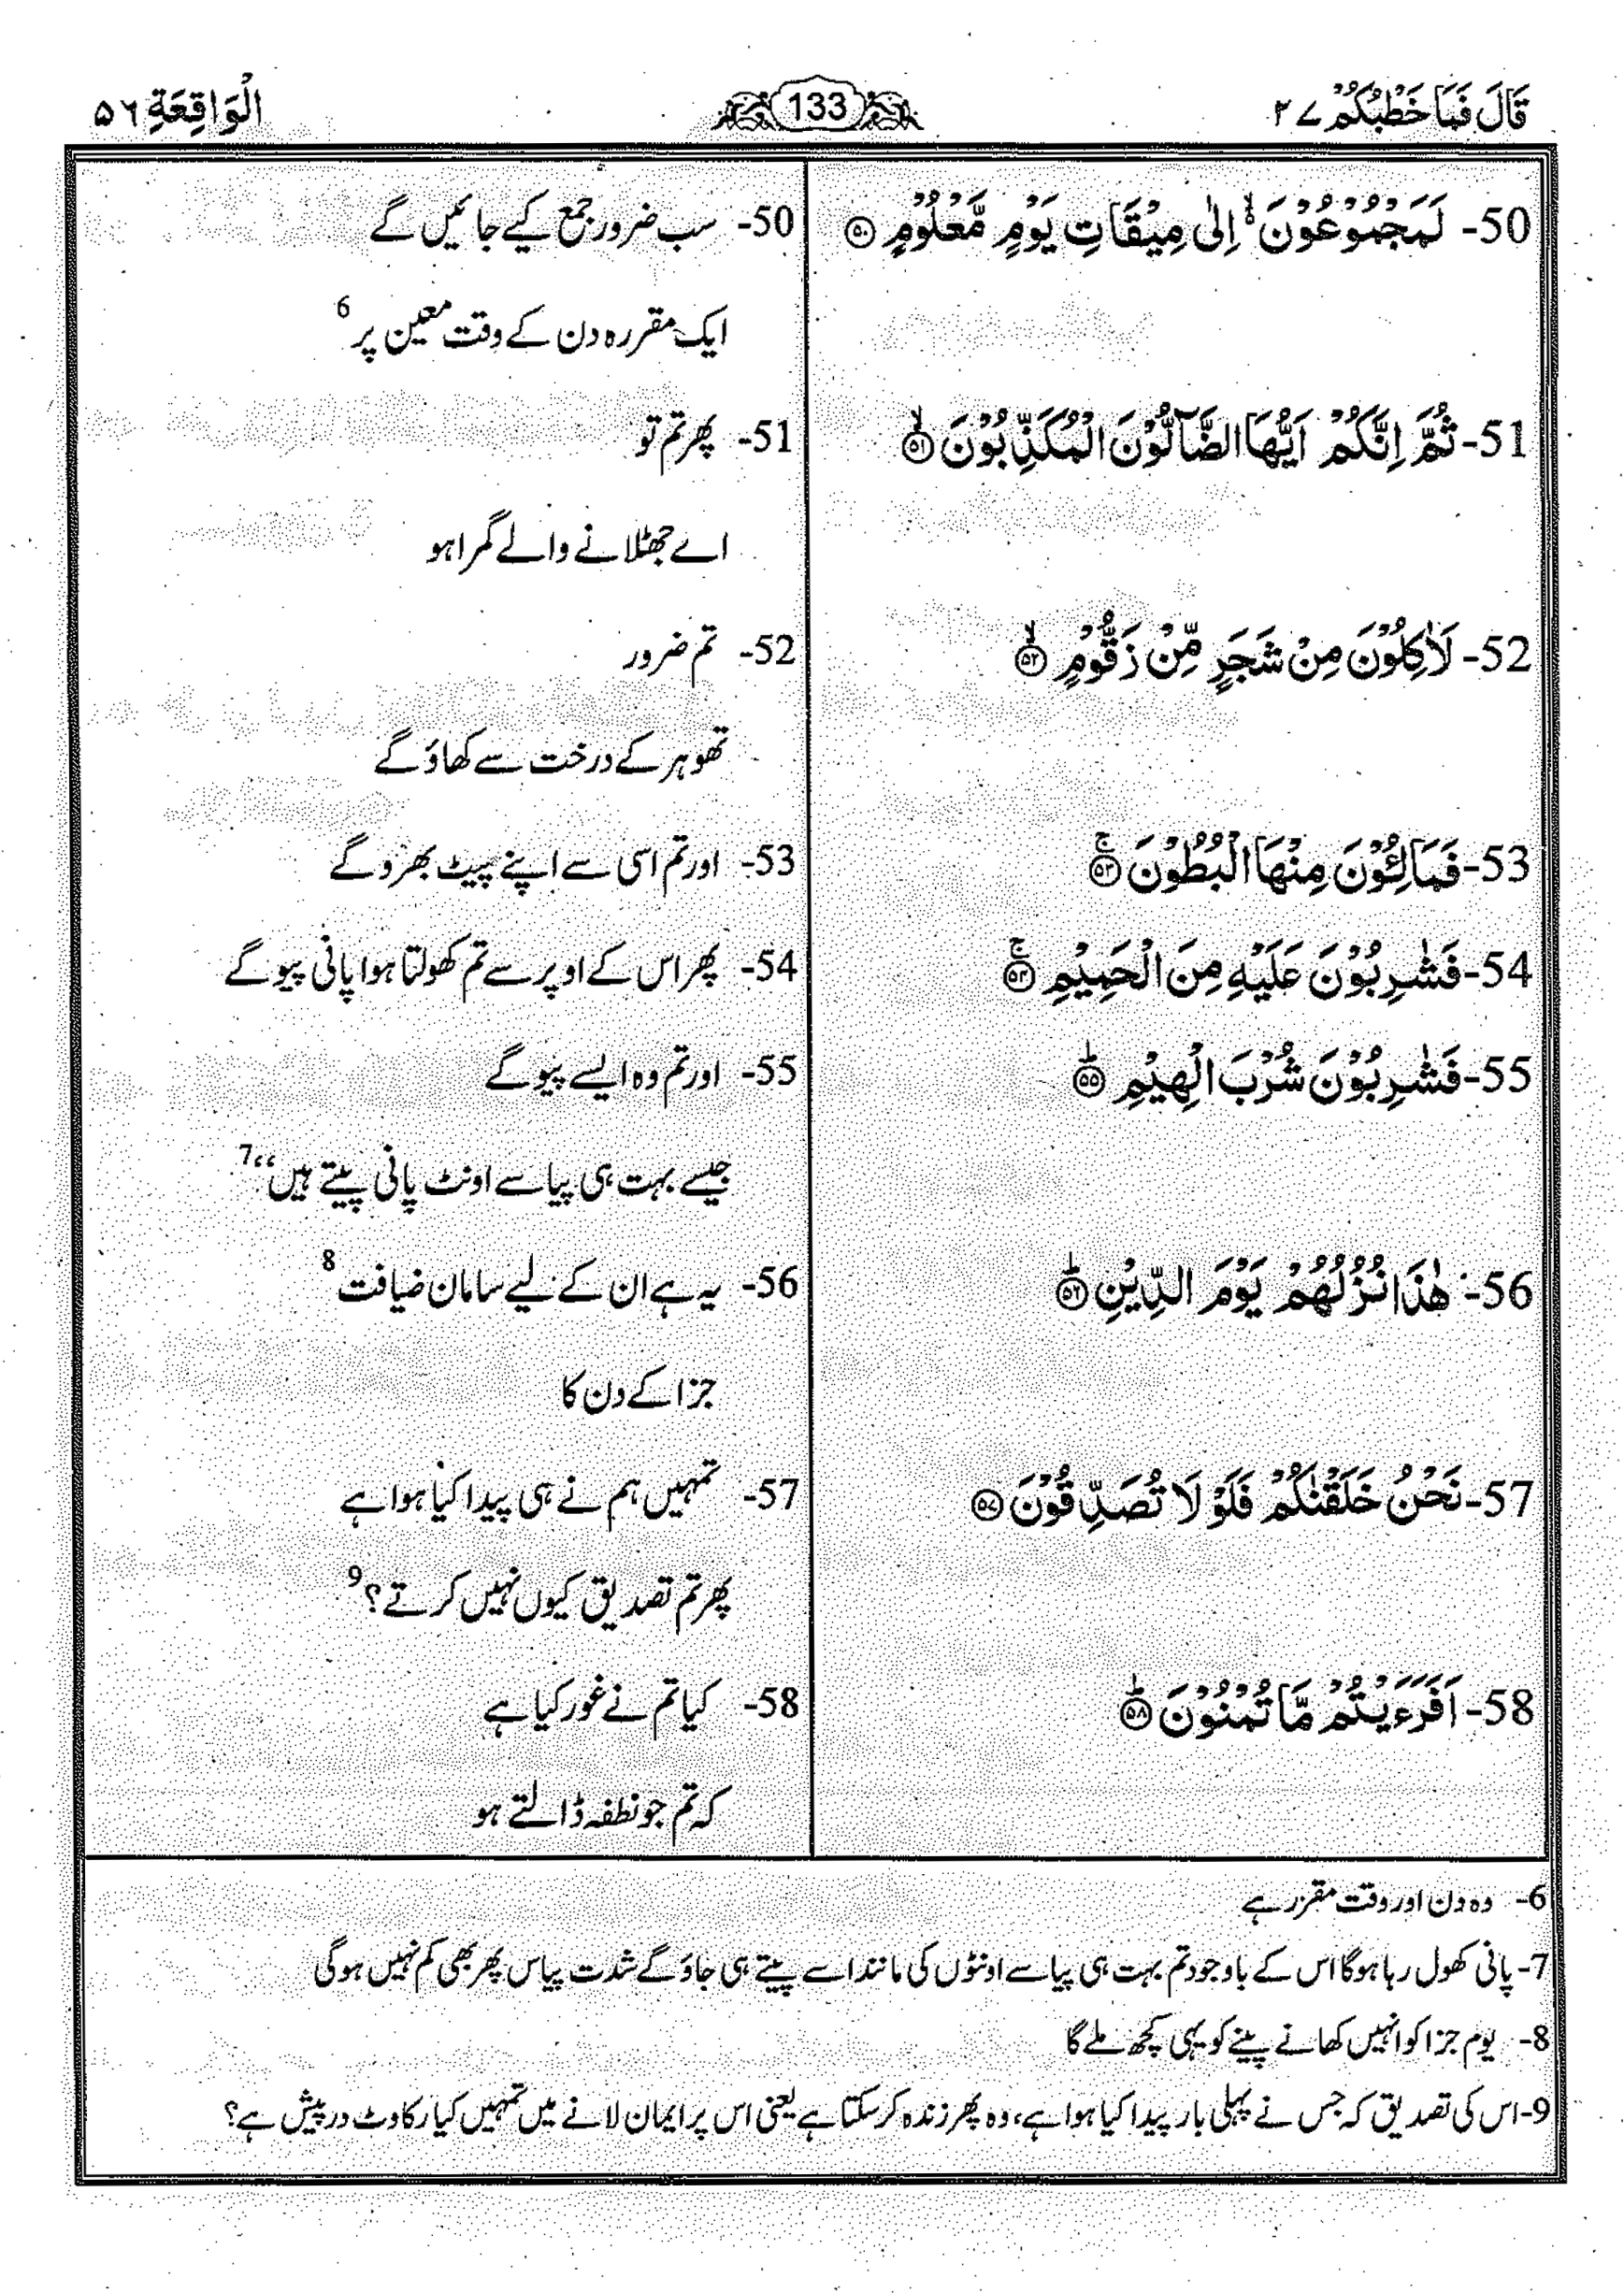 قَالَ فَمَا خَطْبُكُمْ ٢٧
133
الْوَاقِعَةِ ٥٦
50- لَمَجْمُوْعُوْنَ ۙ اِلٰى مِيْقَاتِ يَوْمٍ مَّعْلُوْمٍ ۝۵۰
50- سب ضرور جمع کیے جائیں گے
ایک مقررہ دن کے وقت معین پر 6
51- ثُمَّ اِنَّكُمْ اَيُّهَا الضَّآلُّوْنَ الْمُكَذِّبُوْنَ ۙ۝۵۱
51- پھر تم تو
اے جھٹلانے والے گمراہو
52- لَاٰكِلُوْنَ مِنْ شَجَرٍ مِّنْ زَقُّوْمٍ ۙ۝۵۲
52- تم ضرور
تھوہر کے درخت سے کھاؤ گے
53- فَمَالِـُٔوْنَ مِنْهَا الْبُطُوْنَ ۚ۝۵۳
53- اور تم اسی سے اپنے پیٹ بھرو گے
54- فَشٰرِبُوْنَ عَلَيْهِ مِنَ الْحَمِيْمِ ۚ۝۵۴
54- پھر اس کے اوپر سے تم کھولتا ہوا پانی پیو گے
55- فَشٰرِبُوْنَ شُرْبَ الْهِيْمِ ؕ۝۵۵
55- اور تم وہ ایسے پیو گے
جیسے بہت ہی پیاسے اونٹ پانی پیتے ہیں“ 7
56- هٰذَا نُزُلُهُمْ يَوْمَ الدِّيْنِ ؕ۝۵۶
56- یہ ہے ان کے لیے سامان ضیافت 8
جزا کے دن کا
57- نَحْنُ خَلَقْنٰكُمْ فَلَوْ لَا تُصَدِّقُوْنَ ۝۵۷
57- تمہیں ہم نے ہی پیدا کیا ہوا ہے
پھر تم تصدیق کیوں نہیں کرتے؟ 9
58- اَفَرَءَيْتُمْ مَّا تُمْنُوْنَ ؕ۝۵۸
58- کیا تم نے غور کیا ہے
کہ تم جو نطفہ ڈالتے ہو
6- وہ دن اور وقت مقرر ہے
7- پانی کھول رہا ہوگا اس کے باوجود تم بہت ہی پیاسے اونٹوں کی مانند اسے پیتے ہی جاؤ گے شدت پیاس پھر بھی کم نہیں ہوگی
8- یوم جزا کو انہیں کھانے پینے کو یہی کچھ ملے گا
9- اس کی تصدیق کہ جس نے پہلی بار پیدا کیا ہوا ہے، وہ پھر زندہ کر سکتا ہے یعنی اس پر ایمان لانے میں تمہیں کیا رکاوٹ درپیش ہے؟